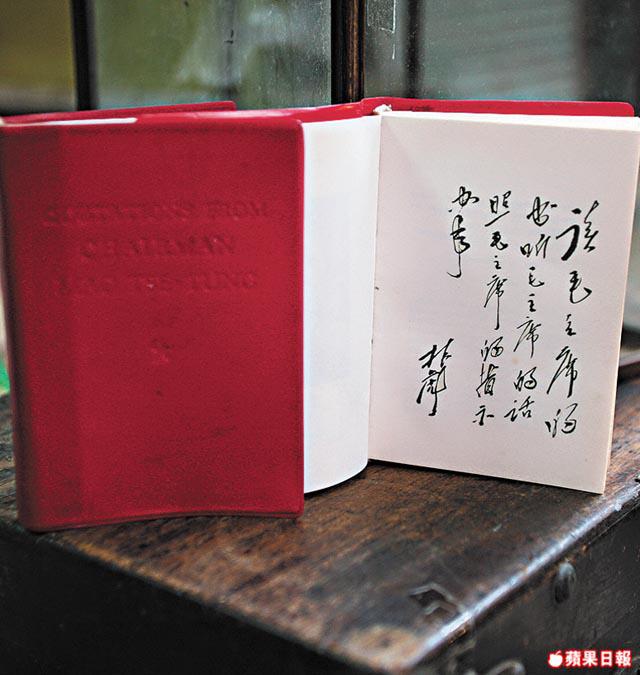 QUOTATIONS FROM
CHAIRMAN
MAO TSE-TUNG
读毛主席的
书听毛主席的话
照毛主席的指示
办事
林彪
蘋果日報